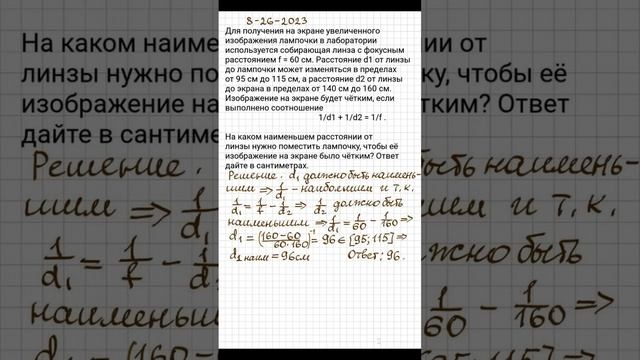 8-26-2023
Для получения на экране увеличенного
изображения лампочки в лаборатории
используется собирающая линза с фокусным
расстоянием f = 60 см. Расстояние d1 от линзы
до лампочки может изменяться в пределах
от 95 см до 115 см, а расстояние d2 от линзы
до экрана в пределах от 140 см до 160 см.
Изображение на экране будет чётким, если
выполнено соотношение
1/d1 + 1/d2 = 1/f .
На каком наименьшем расстоянии от
линзы нужно поместить лампочку, чтобы её
изображение на экране было чётким? Ответ
дайте в сантиметрах.
Решение. d₁ должно быть наимень-
шим => 1/d₁ - наибольшим и т.к.
1/d₁ = 1/f - 1/d₂ => 1/d₂ должно быть
наименьшим => 1/d₁ = 1/60 - 1/160 =>
d₁ = ((160-60)/(60·160))⁻¹ = 96 ∈ [95;115] =>
d₁ наим = 96см Ответ: 96.
На каком наиме
линзы нужно по
изображение на
дайте в сантиме
Решение.
шим => 1/d₁
1/d₁ = 1/f -
наименьш
ии от
чку, чтобы её
тким? Ответ
быть наимень-
м и т.к.
но быть
1/60 - 1/160 =>